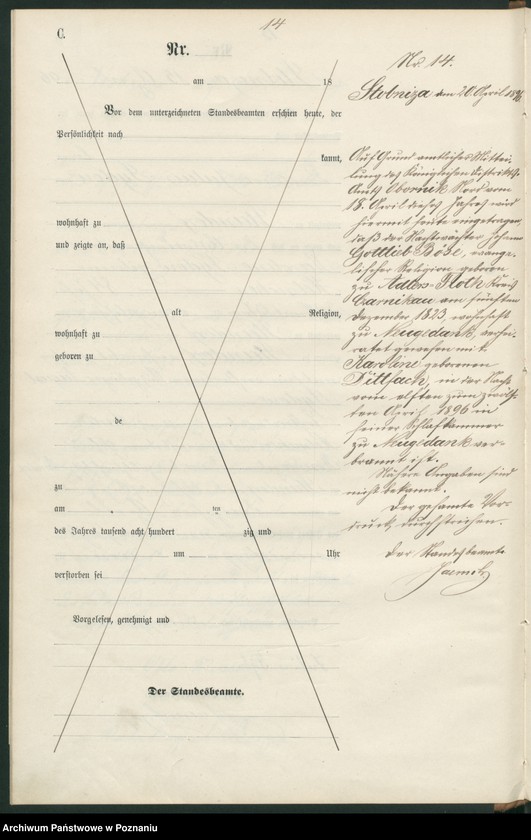 14
C.
Nr.
am 18
Vor dem unterzeichneten Standesbeamten erschien heute, der
Persönlichkeit nach
kannt,
wohnhaft zu
und zeigte an, daß
alt Religion,
wohnhaft zu
geboren zu
de
zu
am ten
des Jahres tausend acht hundert zig und
um Uhr
verstorben sei
Vorgelesen, genehmigt und
Der Standesbeamte.
Nr 14.
am 20. April 1896
Auf Grund amtlicher Mittei-
lung des Königlichen Distrikts-
Amts Obornik Nord vom
18. April dieses Jahres wird
hiermit heute eingetragen,
daß der Nachtwächter Johann
Gottlieb Böse, evange-
lischer Religion geboren
zu Kreis
Czarnikau am fünften
Dezember 1823, wohnhaft
zu Neugedank, verhei-
ratet gewesen mit
Karoline geborenen
Tittfach, in der Nacht
vom elften zum zwölf-
ten April 1896 in
seiner Schlafkammer
zu Neugedank ver-
brannt ist.
Nähere Angaben sind
nicht bekannt.
Der gesamte Vor-
druck durchstrichen.
Der Standesbeamte
Archiwum Państwowe w Poznaniu